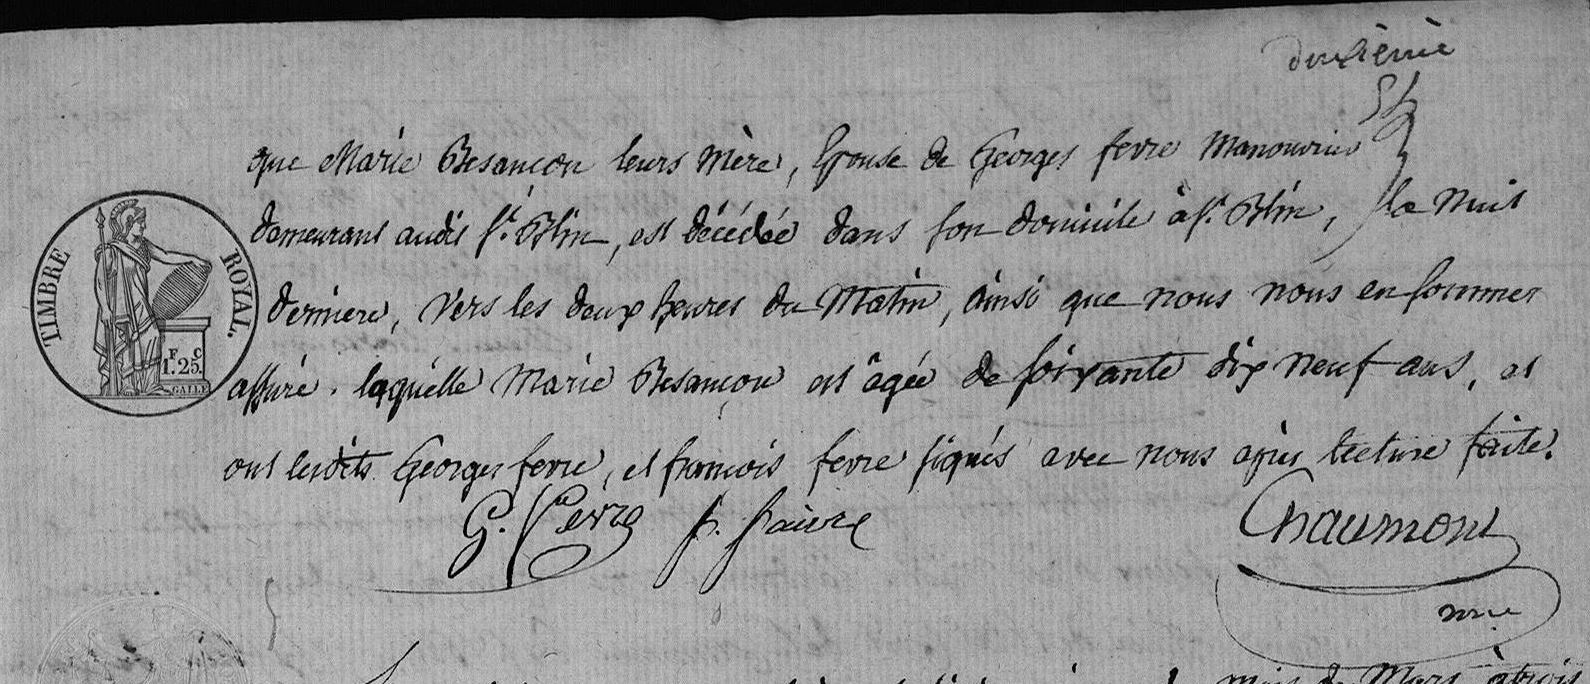 deuxième
que Marie Besançon leurs mère, Epouse de Georges ferre Manouvrier
demeurant audit St. Blin, est décédée dans son domicile à St. Blin, la nuit
derniere, vers les deux heures du Matin, ainsi que nous nous en sommes
assuré. laquelle Marie Besançon est âgée de soixante dix neuf ans, et
ont lesdits Georges ferre, et françois ferre signés avec nous après lecture faite.
TIMBRE ROYAL.
F C
1. 25.
G. Ferre f. faivre Chaumont
mois de Mars, à trois